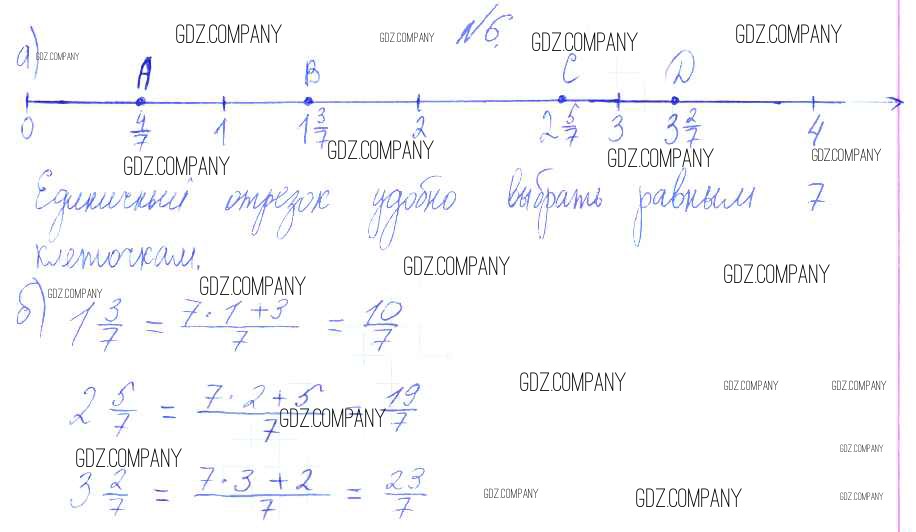 GDZ.COMPANY GDZ.COMPANY №6. GDZ.COMPANY GDZ.COMPANY
а) GDZ.COMPANY
A B C D
0 4/7 1 1 3/7 2 2 5/7 3 3 2/7 4
GDZ.COMPANY GDZ.COMPANY GDZ.COMPANY GDZ.COMPANY
Единичный отрезок удобно выбрать равным 7
клеточкам.
GDZ.COMPANY GDZ.COMPANY
GDZ.COMPANY GDZ.COMPANY
б) 1 3/7 = (7·1+3)/7 = 10/7
GDZ.COMPANY GDZ.COMPANY GDZ.COMPANY
2 5/7 = (7·2+5)/7 = 19/7
GDZ.COMPANY
GDZ.COMPANY GDZ.COMPANY
3 2/7 = (7·3+2)/7 = 23/7
GDZ.COMPANY GDZ.COMPANY GDZ.COMPANY